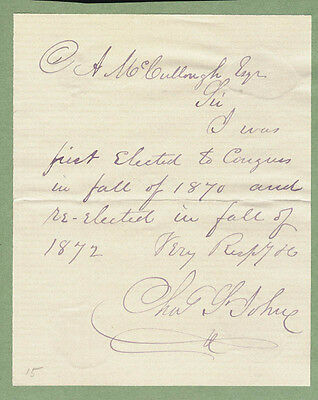 C A McCullough Esqr
Sir
I was
first Elected to Congress
in fall of 1870 and
re-elected in fall of
1872 Very Respy &c
Chas St John
15